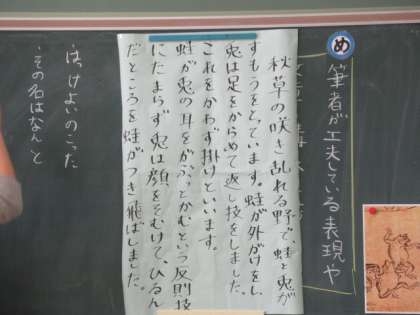 め
筆者が工夫している表現や
秋草の咲き乱れる野で、蛙と兎が
すもうをとっています。蛙が外がけをし、
兎は足をからめて返し技をしました。
これをかわず掛けといいます。
蛙が兎の耳をがぶっとかむという反則技
にたまらず兎は顔をそむけて、ひるん
だところを蛙がつき飛ばしました。
・はっけよいのこった
・その名はなんと